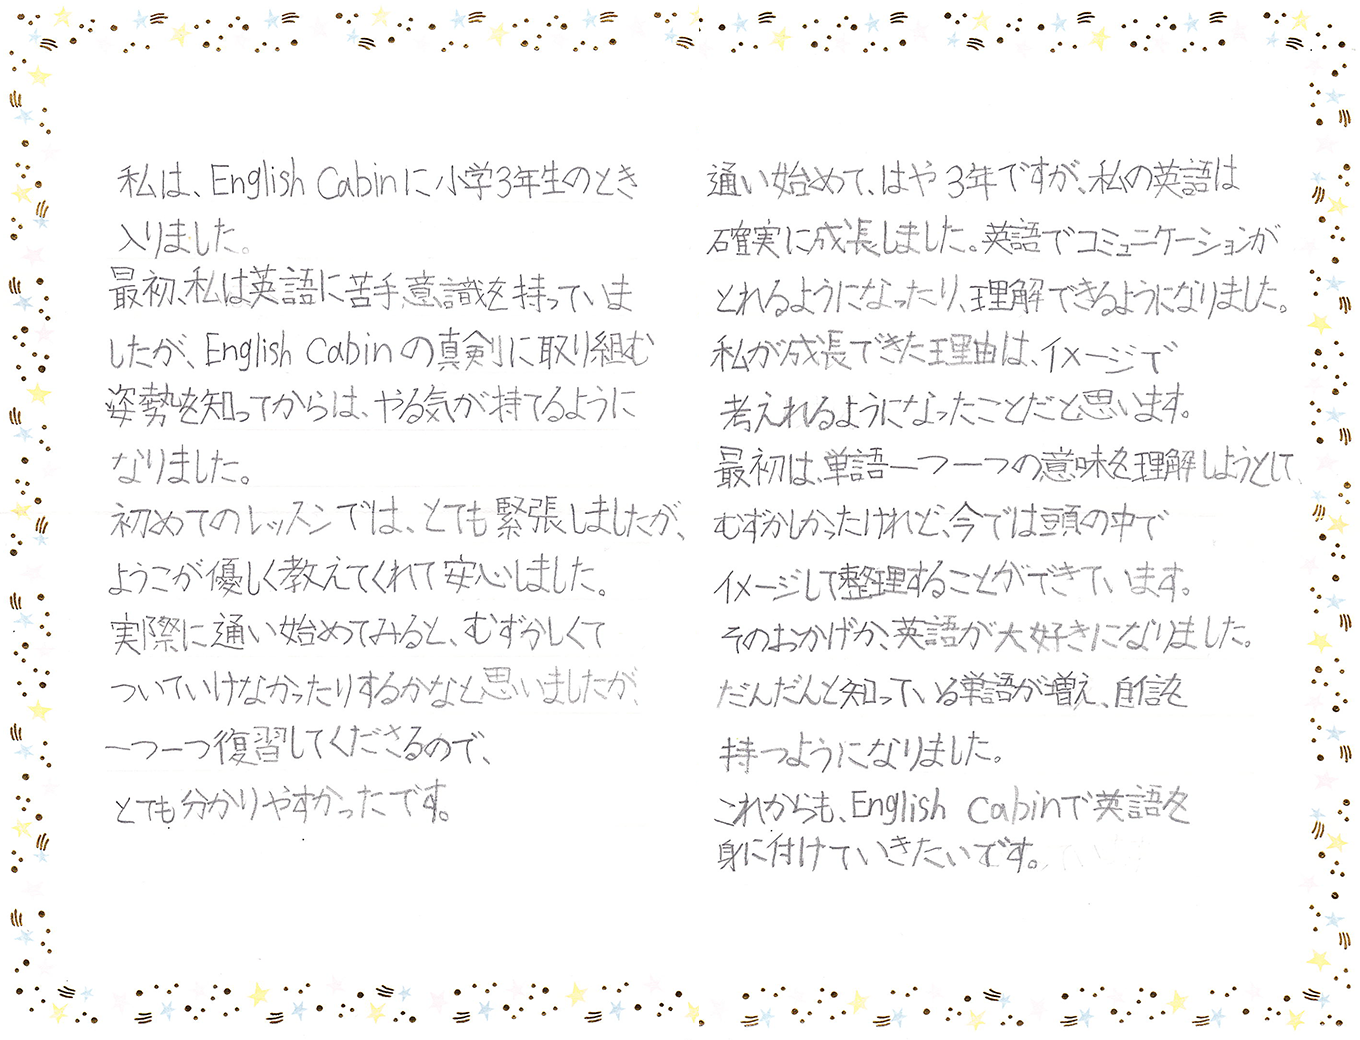 私は、English Cabinに小学3年生のとき
入りました。
最初、私は英語に苦手意識を持っていま
したが、English Cabinの真剣に取り組む
姿勢を知ってからは、やる気が持てるように
なりました。
初めてのレッスンでは、とても緊張しましたが、
ようこが優しく教えてくれて安心しました。
実際に通い始めてみると、むずかしくて
ついていけなかったりするかなと思いましたが、
一つ一つ復習してくださるので、
とても分かりやすかったです。
通い始めて、はや3年ですが、私の英語は
確実に成長しました。英語でコミュニケーションが
とれるようになったり、理解できるようになりました。
私が成長できた理由は、イメージで
考えれるようになったことだと思います。
最初は、単語一つ一つの意味を理解しようとして、
むずかしかったけれど、今では頭の中で
イメージして整理することができています。
そのおかげか、英語が大好きになりました。
だんだんと知っている単語が増え、自信を
持つようになりました。
これからも、English Cabinで英語を
身に付けていきたいです。